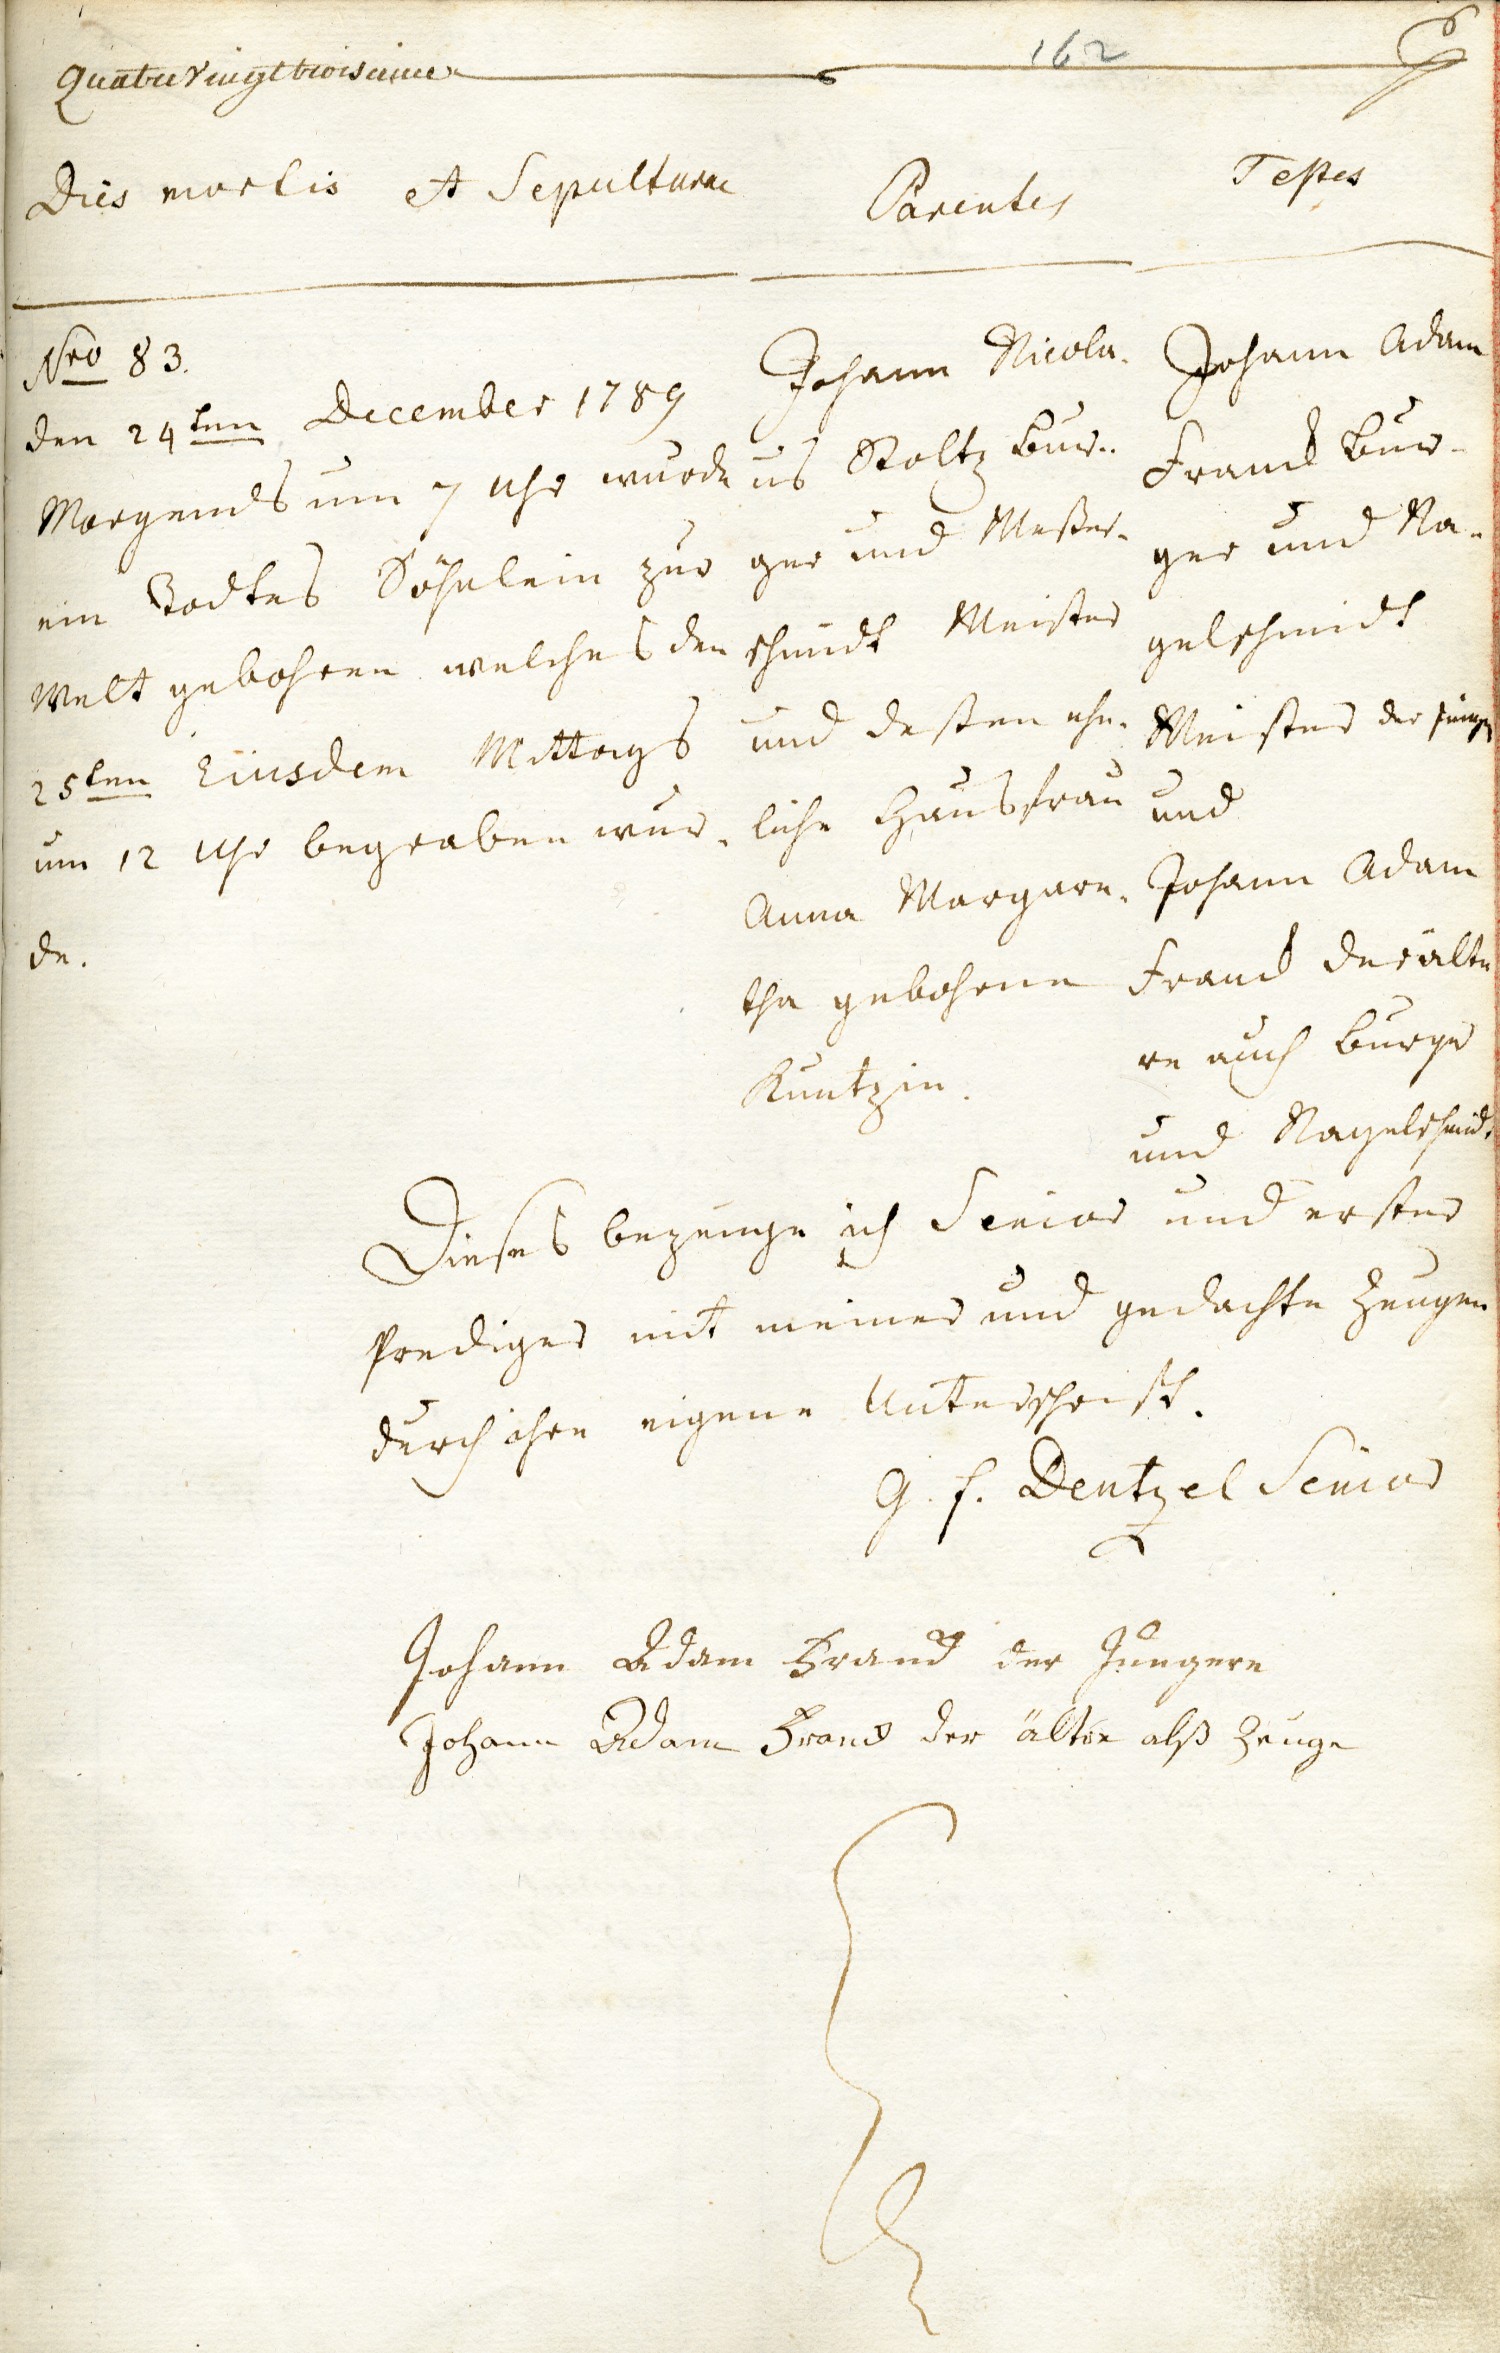 Quatre Vingt troisieme
162
Dies mortis et Sepulturae
Parentes
Testes
Nro 83.
den 24ten December 1789
Morgends um 7 Uhr wurde
ein Todtes Söhnlein zur
Welt gebohren welches den
25ten Eiusdem Mittags
um 12 Uhr begraben wur-
de.
Johann Nicola-
us Stoltz Bur-
ger und Meßer-
schmidt Meister
und deßen ehe-
liche Hausfrau
Anna Margare-
tha gebohrne
Kuntzin.
Johann Adam
Frand Bur-
ger und Na-
gelschmidt
Meister der jünge
und
Johann Adam
Frand der älte
re auch Burger
und Nagelschmidt
Dieses bezeuge ich Senior und erster
Prediger mit meiner und gedachte Zeugen
durch ihre eigene Unterschrift.
G. F. Dentzel Senior
Johann Adam Frand der Jüngere
Johann Adam Frand der ältre alß Zeuge